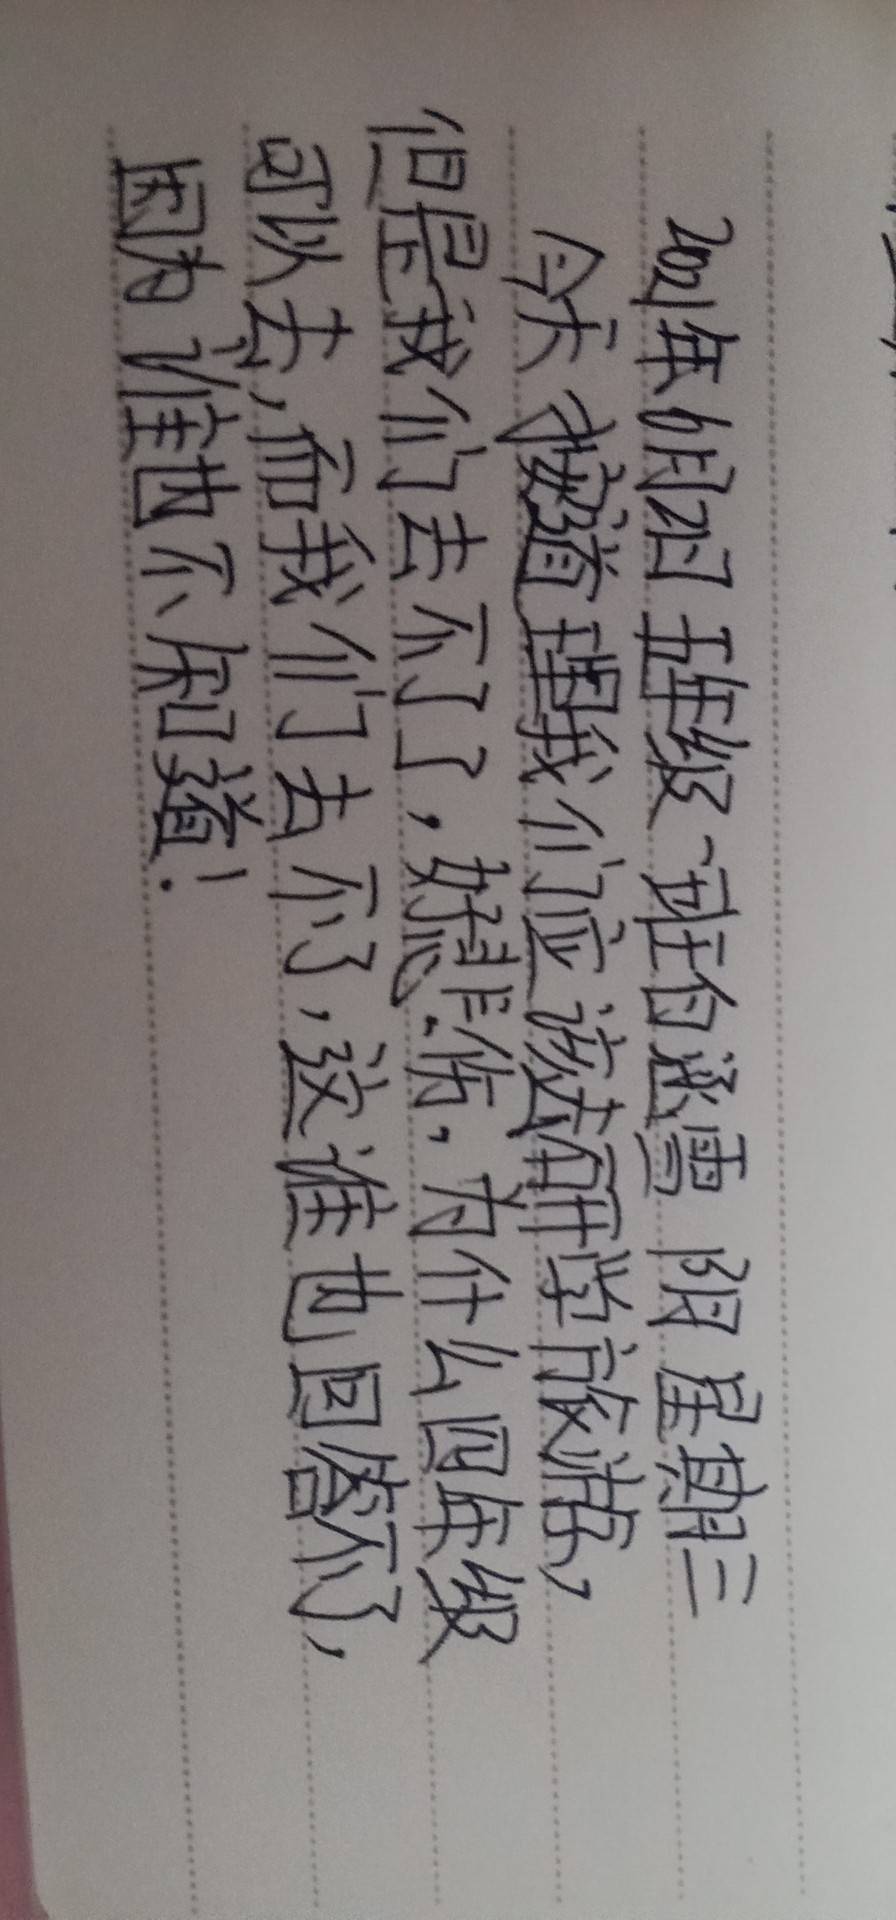 2021年6月2日 五年级一班白 雪 阴 星期三
今天按道理我们应该去研学旅游，
但是我们去不了了，好悲伤，为什么四年级
可以去，而我们去不了，这谁也回答不了，
因为谁也不知道！